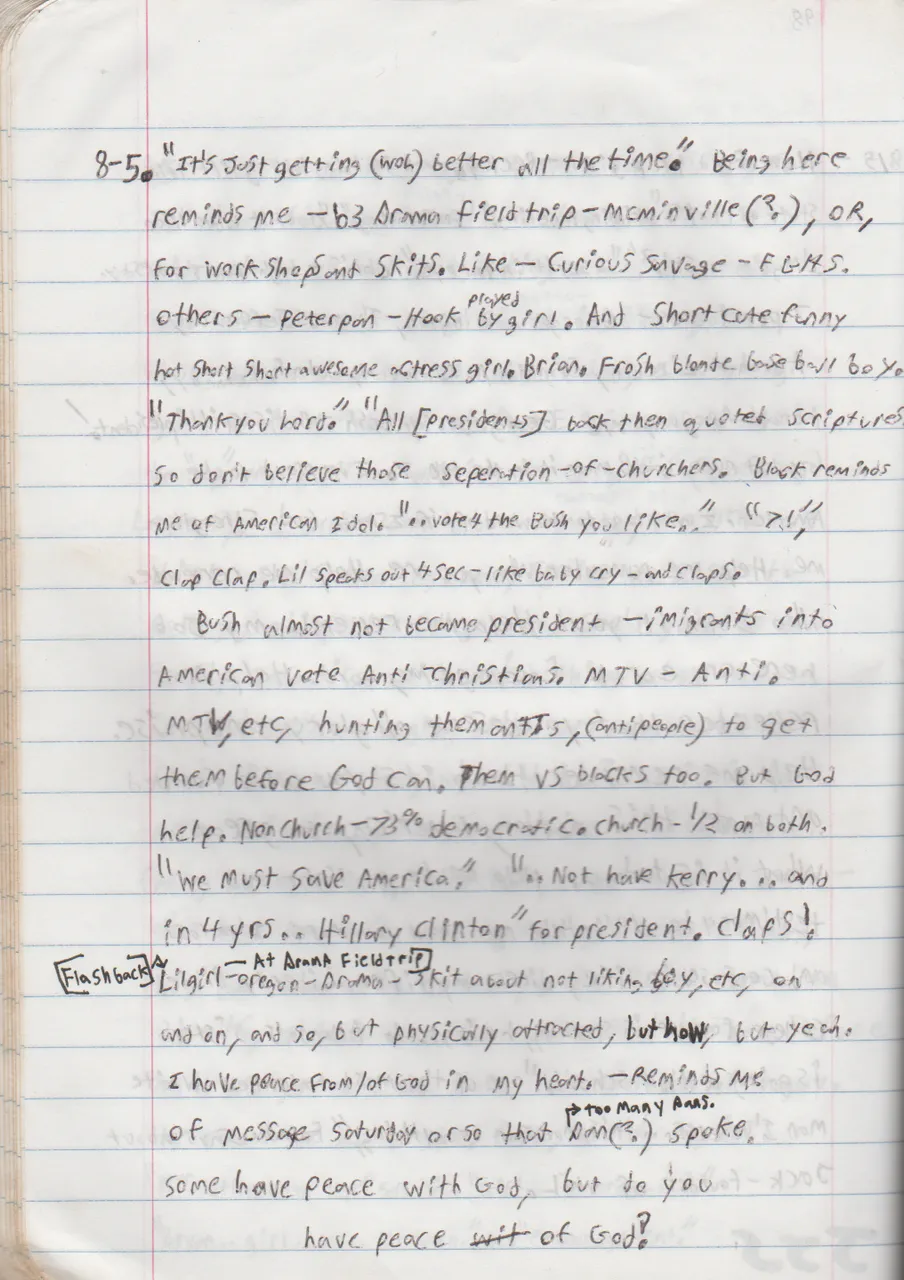 8-5. "It's Just getting (woh) better all the time." Being here
reminds me — b3 Drama Field trip — Mcminville (?.), OR,
for work shops and Skits. Like — Curious Savage — FGHS.
played
others — Peterpan — Hook by girl. And Short cute funny
hot short short awesome actress girl. Brian. Frosh blonde base ball boy.
"Thank you Lord." "All [presidents] back then a quoted scriptures
so don't believe those seperation-of-churchers. Black reminds
me of American Idol. "..vote 4 the Bush you like.." "?!",
Clap Clap. Lil speaks out 4 sec — like baby cry — and claps.
Bush almost not became president — imigrants into
American vote Anti Christians. MTV — Anti.
MTV, etc, hunting them antis, (antipeople) to get
them before God can. Them vs blacks too. But God
help. Non Church — 73% democratic. church - 1/2 on both.
"We Must Save America." ".. Not have Kerry... and
in 4 yrs.. Hillary Clinton" for president. Claps!
[Flashback] — At Drama Field trip]
Lil girl — oregon — Drama — Skit about not liking boy, etc, on
and on, and so, but physically attracted, but how, but yeah.
I have peace from/of God in my heart. — Reminds me
→ too Many Dans.
of message Saturday or so that Dan(?.) spoke.
some have peace with God, but do you
have peace wit of God?